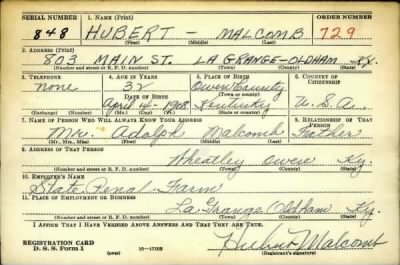 SERIAL NUMBER 1. NAME (Print) ORDER NUMBER
848 HUBERT - MALCOMB 729
(First) (Middle) (Last)
2. ADDRESS (Print)
803 MAIN ST. LA GRANGE-OLDHAM KY.
(Number and street or R. F. D. number) (Town) (County) (State)
3. TELEPHONE 4. AGE IN YEARS 5. PLACE OF BIRTH 6. COUNTRY OF CITIZENSHIP
none 32 Owen County
DATE OF BIRTH (Town or county)
April 4 - 1908 Kentucky U.S.A.
(Exchange) (Number) (Mo.) (Day) (Yr.) (State or country)
7. NAME OF PERSON WHO WILL ALWAYS KNOW YOUR ADDRESS 8. RELATIONSHIP OF THAT PERSON
Mr. Adolph Malcomb Father
(Mr., Mrs., Miss) (First) (Middle) (Last)
9. ADDRESS OF THAT PERSON
Wheatley Owen Ky.
(Number and street or R. F. D. number) (Town) (County) (State)
10. EMPLOYER'S NAME
State Penal Farm
11. PLACE OF EMPLOYMENT OR BUSINESS
La Grange Oldham Ky.
(Number and street or R. F. D. number) (Town) (County) (State)
I AFFIRM THAT I HAVE VERIFIED ABOVE ANSWERS AND THAT THEY ARE TRUE.
REGISTRATION CARD
D. S. S. Form 1 (over) 16-17105 Hubert Malcomb
(Registrant's signature)